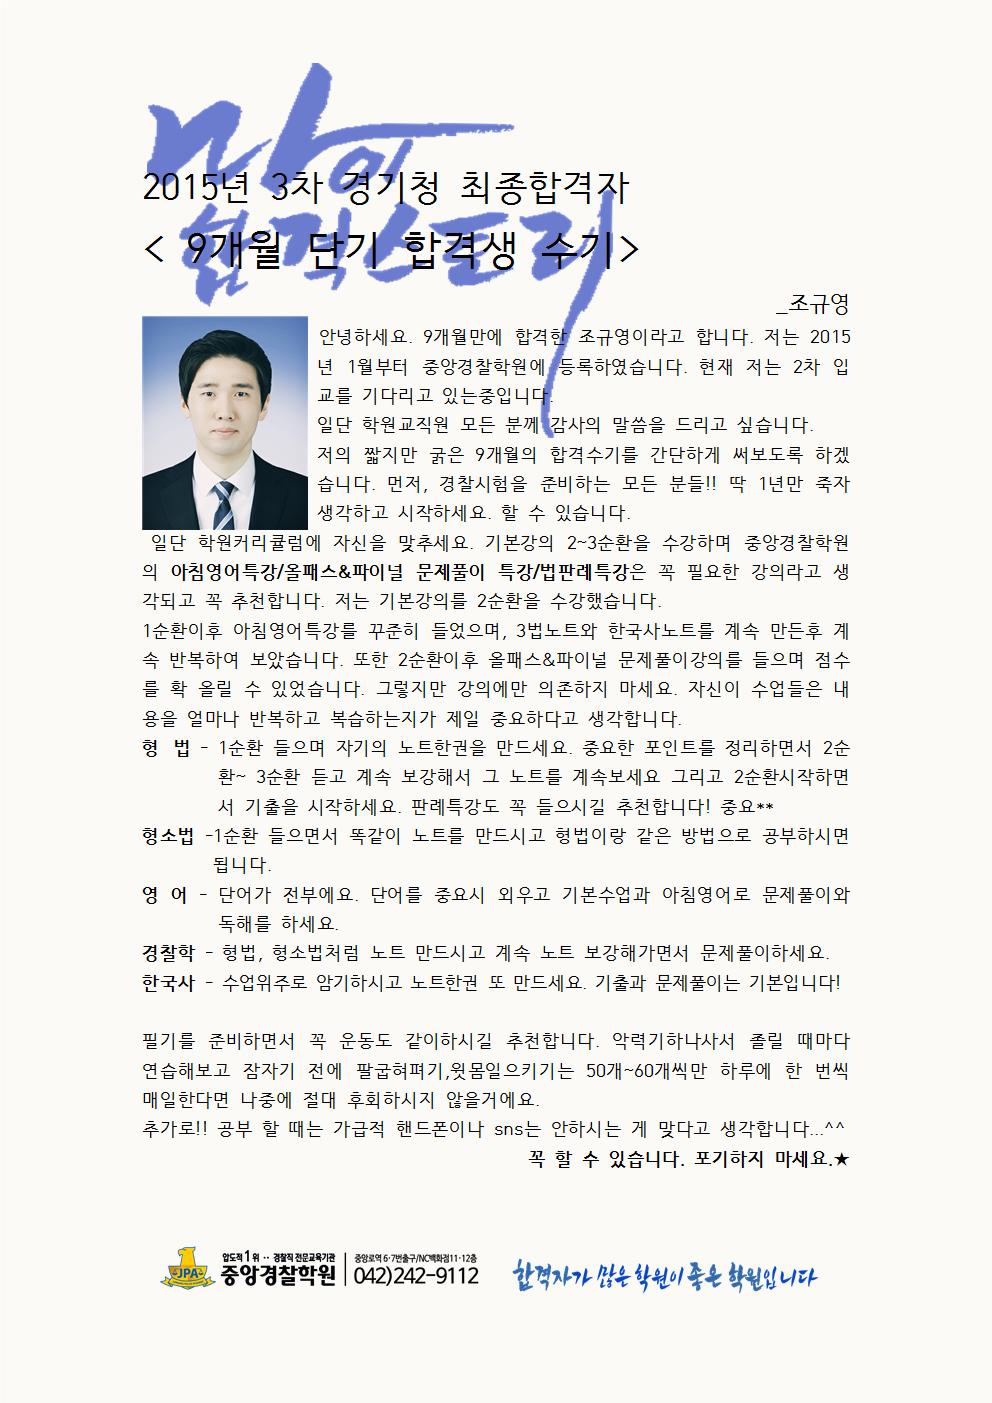 마이
합격스토리
2015년 3차 경기청 최종합격자
< 9개월 단기 합격생 수기>
_조규영
안녕하세요. 9개월만에 합격한 조규영이라고 합니다. 저는 2015
년 1월부터 중앙경찰학원에 등록하였습니다. 현재 저는 2차 입
교를 기다리고 있는중입니다.
일단 학원교직원 모든 분께 감사의 말씀을 드리고 싶습니다.
저의 짧지만 굵은 9개월의 합격수기를 간단하게 써보도록 하겠
습니다. 먼저, 경찰시험을 준비하는 모든 분들!! 딱 1년만 죽자
생각하고 시작하세요. 할 수 있습니다.
일단 학원커리큘럼에 자신을 맞추세요. 기본강의 2~3순환을 수강하며 중앙경찰학원
의 아침영어특강/올패스&파이널 문제풀이 특강/법판례특강은 꼭 필요한 강의라고 생
각되고 꼭 추천합니다. 저는 기본강의를 2순환을 수강했습니다.
1순환이후 아침영어특강를 꾸준히 들었으며, 3법노트와 한국사노트를 계속 만든후 계
속 반복하여 보았습니다. 또한 2순환이후 올패스&파이널 문제풀이강의를 들으며 점수
를 확 올릴 수 있었습니다. 그렇지만 강의에만 의존하지 마세요. 자신이 수업들은 내
용을 얼마나 반복하고 복습하는지가 제일 중요하다고 생각합니다.
형 법 - 1순환 들으며 자기의 노트한권을 만드세요. 중요한 포인트를 정리하면서 2순
환~ 3순환 듣고 계속 보강해서 그 노트를 계속보세요 그리고 2순환시작하면
서 기출을 시작하세요. 판례특강도 꼭 들으시길 추천합니다! 중요**
형소법 -1순환 들으면서 똑같이 노트를 만드시고 형법이랑 같은 방법으로 공부하시면
됩니다.
영 어 - 단어가 전부에요. 단어를 중요시 외우고 기본수업과 아침영어로 문제풀이와
독해를 하세요.
경찰학 - 형법, 형소법처럼 노트 만드시고 계속 노트 보강해가면서 문제풀이하세요.
한국사 - 수업위주로 암기하시고 노트한권 또 만드세요. 기출과 문제풀이는 기본입니다!
필기를 준비하면서 꼭 운동도 같이하시길 추천합니다. 악력기하나사서 졸릴 때마다
연습해보고 잠자기 전에 팔굽혀펴기,윗몸일으키기는 50개~60개씩만 하루에 한 번씩
매일한다면 나중에 절대 후회하시지 않을거에요.
추가로!! 공부 할 때는 가급적 핸드폰이나 sns는 안하시는 게 맞다고 생각합니다...^^
꼭 할 수 있습니다. 포기하지 마세요.★
JPA
압도적 1위 ·· 경찰직 전문교육기관
중앙경찰학원
중앙로역 6·7번출구/NC백화점11·12층
042)242-9112
합격자가 많은 학원이 좋은 학원입니다